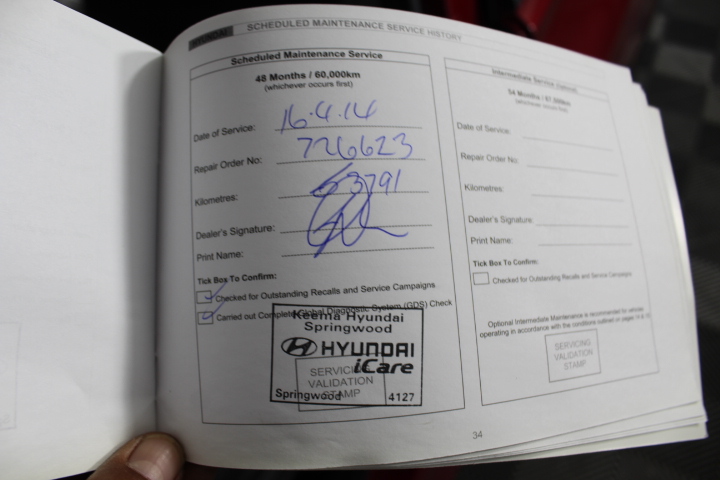 HYUNDAI SCHEDULED MAINTENANCE SERVICE HISTORY
Scheduled Maintenance Service
48 Months / 60,000km
(whichever occurs first)
Date of Service: 16.4.14
Repair Order No: 726623
Kilometres: 53791
Dealer's Signature:
Print Name:
Tick Box To Confirm:
Checked for Outstanding Recalls and Service Campaigns
Carried out Complete Global Diagnostic System (GDS) Check
Keema Hyundai
Springwood
HYUNDAI
iCare
SERVICING
VALIDATION
STAMP
Springwood 4127
Intermediate Service (Optional)
54 Months / 67,500km
(whichever occurs first)
Date of Service:
Repair Order No:
Kilometres:
Dealer's Signature:
Print Name:
Tick Box To Confirm:
Checked for Outstanding Recalls and Service Campaigns
Optional Intermediate Maintenance is recommended for vehicles
operating in accordance with the conditions outlined on pages
SERVICING
VALIDATION
STAMP
34